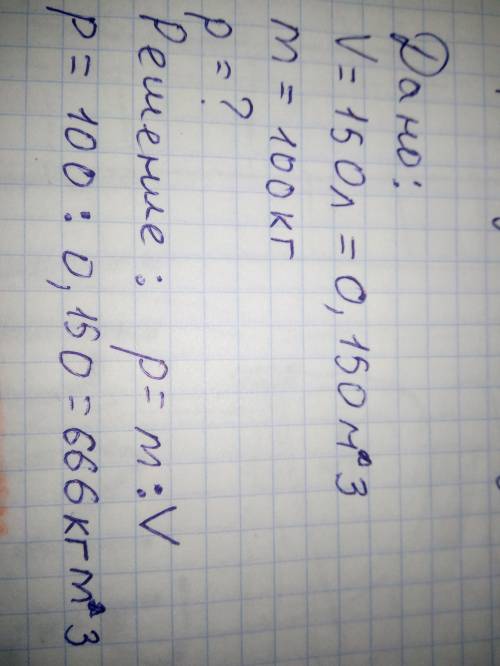 Дано:
V = 150л = 0,150м^3
m = 100кг
p = ?
Решение: p = m : V
p = 100 : 0,150 = 666кгм^3